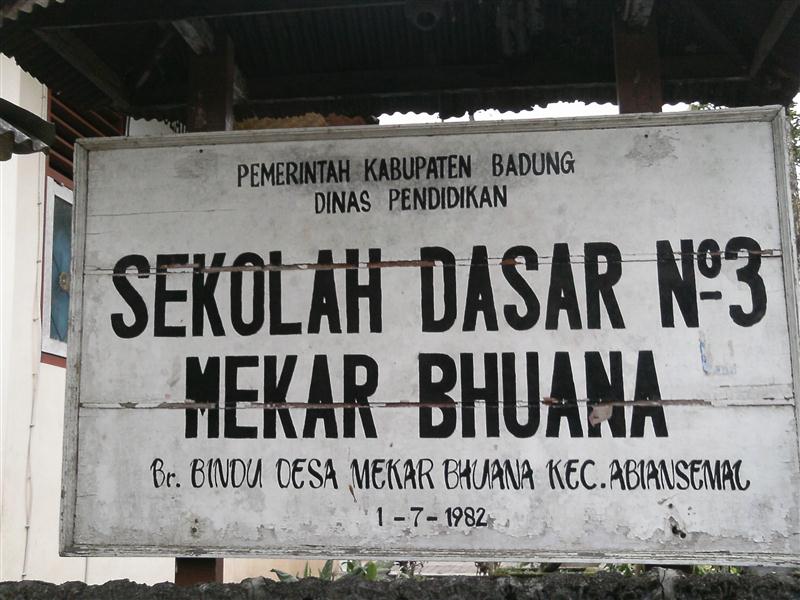 PEMERINTAH KABUPATEN BADUNG
DINAS PENDIDIKAN
SEKOLAH DASAR Nº 3
MEKAR BHUANA
Br. BINDU DESA MEKAR BHUANA KEC. ABIANSEMAL
1-7-1982